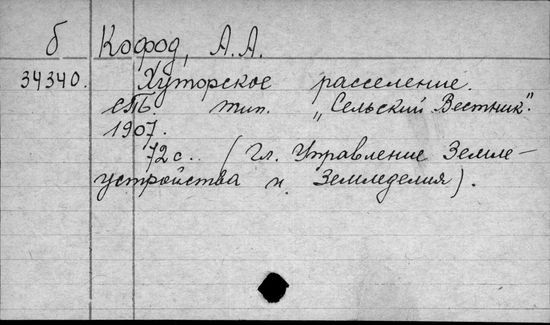 б Кофод, А. А.
34340. Хуторское расселение.
СПБ. тип. „Сельский Вестник".
1907.
72 с. (Гл. Управление Земле-
устройства и Земледелия).